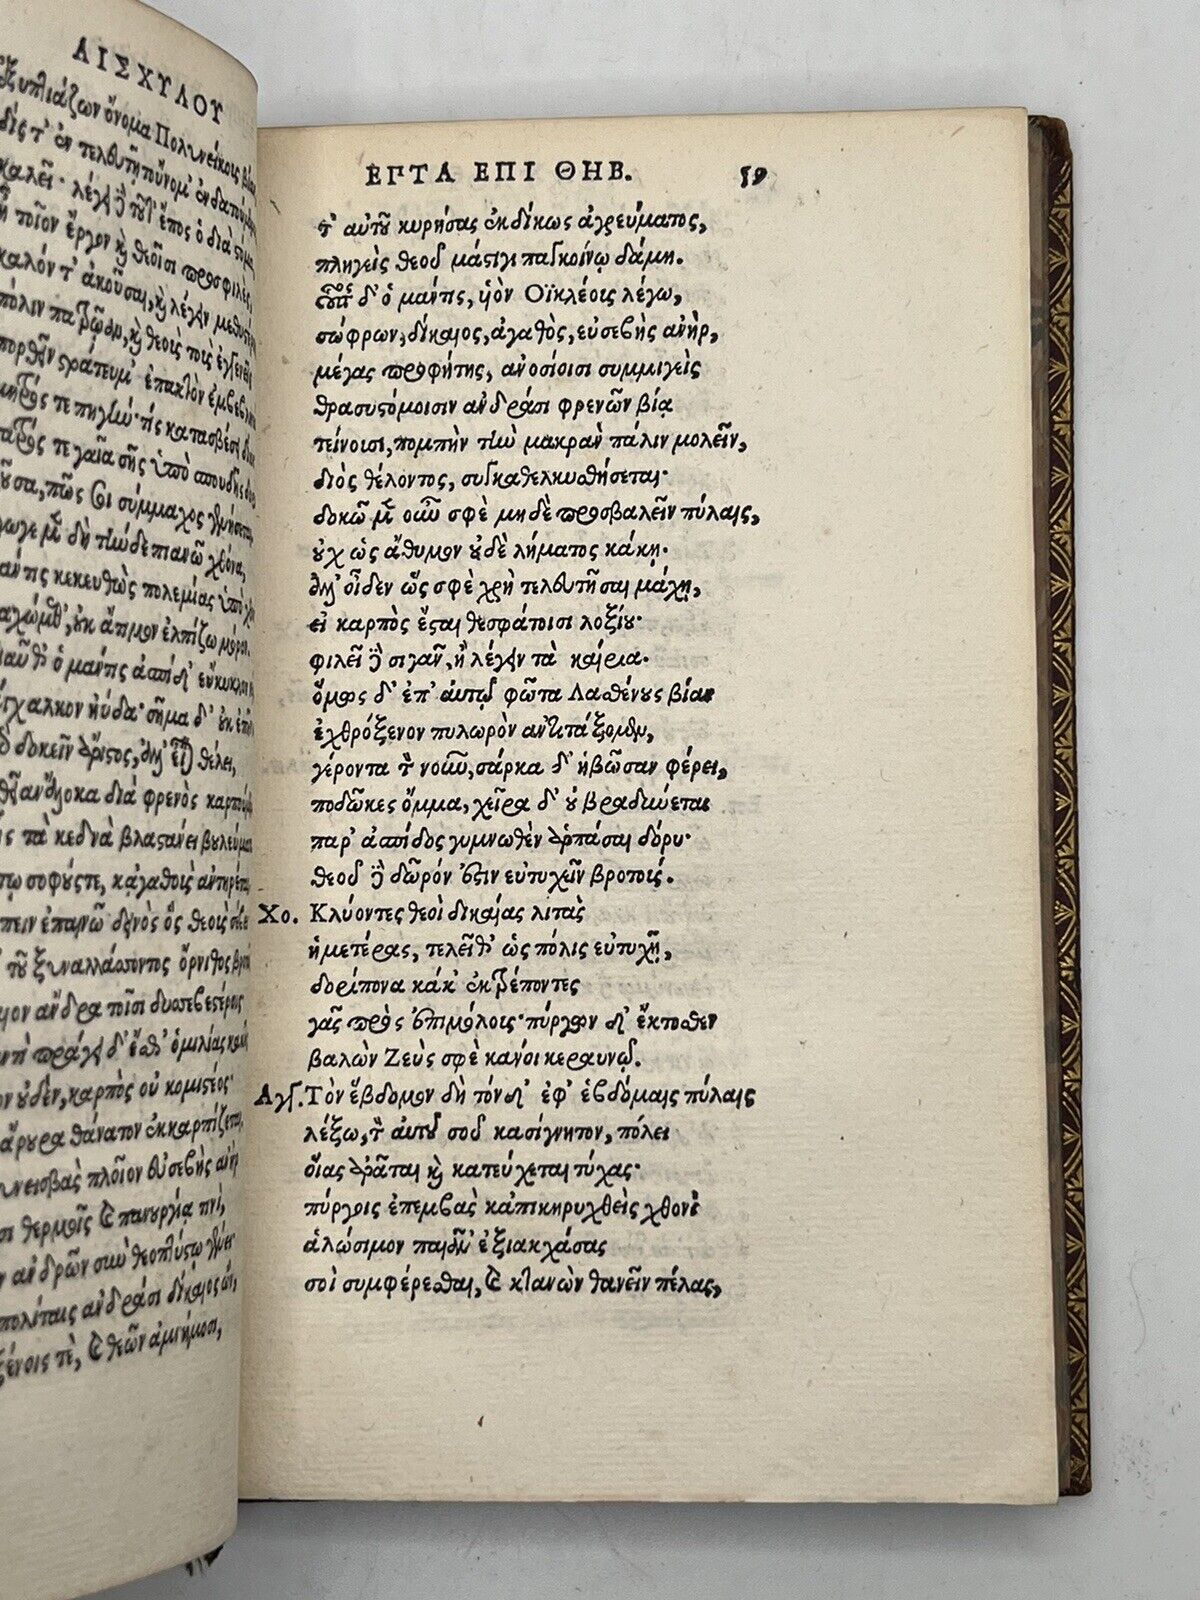 ΑΙΣΧΥΛΟΥ
ὄνομα
καλεῖ· λέγει
ποῖον ἔργον καὶ θεοῖσι προσφιλὲς,
καλόν τ' ἀκοῦσαι, καὶ λέγειν
πόλιν πατρῴαν, καὶ θεοὺς τοὺς ἐγγενεῖς
πορθεῖν στράτευμ' ἐπακτὸν
τε πηγὴν τίς κατασβέσει
τε γαῖα σῆς ὑπὸ σπουδῆς
πῶς σοι σύμμαχος γενήσεται
δὴ τήνδε πιανῶ χθόνα,
κεκευθὼς πολεμίας ὑπὸ
οὐκ ἄτιμον ἐλπίζω μόρον.
ὁ μάντις ἀσπίδ' εὔκυκλον
σῆμα δ' οὐκ
δοκεῖν ἄριστος, ἀλλ' εἶναι θέλει,
διὰ φρενὸς
τὰ κεδνὰ βλαστάνει βουλεύματα
σοφούς τε, κἀγαθοὺς ἀντηρέτας
ἐπαινῶ δεινὸς ὃς θεοὺς σέβει
τοῦ ξυναλλάσσοντος ὄρνιθος
ἄνδρα τοῖσι δυσσεβεστέροις
πράγει δ' ἔσθ' ὁμιλίας κακῆς
οὐδὲν, καρπὸς οὐ κομιστέος·
ἄρουρα θάνατον ἐκκαρπίζεται,
πλοῖον εὐσεβὴς ἀνὴρ
θερμοῖς καὶ πανουργίᾳ τινὶ,
ἀνδρῶν σὺν θεοπτύστῳ γένει·
πολίταις ἀνδράσι δίκαιος ὢν,
τὲ, καὶ θεῶν ἀμνήμοσι,
ΕΠΤΑ ΕΠΙ ΘΗΒ. 59
τ' αὐτοῦ κυρήσας ἐκδίκως ἀγρεύματος,
πληγεὶς θεοῦ μάστιγι παγκοίνῳ δάμη.
οὕτως δ' ὁ μάντις, υἱὸν Οἰκλέους λέγω,
σώφρων, δίκαιος, ἀγαθὸς, εὐσεβὴς ἀνὴρ,
μέγας προφήτης, ἀνοσίοισι συμμιγεὶς
θρασυστόμοισιν ἀνδράσι φρενῶν βίᾳ
τείνουσι, πομπὴν τὴν μακρὰν πάλιν μολεῖν,
διὸς θέλοντος, συγκαθελκυσθήσεται·
δοκῶ μὲν οὖν σφὲ μηδὲ προσβαλεῖν πύλαις,
οὐχ ὡς ἄθυμον οὐδὲ λήματος κάκη·
ἀλλ' οἶδεν ὥς σφὲ χρὴ τελευτῆσαι μάχῃ,
εἰ καρπὸς ἔσται θεσφάτοισι λοξίου·
φιλεῖ δὲ σιγᾶν, ἢ λέγειν τὰ καίρια.
ὅμως δ' ἐπ' αὐτῷ φῶτα Λασθένους βίαν
ἐχθρόξενον πυλωρὸν ἀντιτάξομεν,
γέροντα τὸν νοῦν, σάρκα δ' ἡβῶσαν φέρει,
ποδῶκες ὄμμα, χεῖρα δ' οὐ βραδύνεται
παρ' ἀσπίδος γυμνωθὲν ἁρπάσαι δόρυ·
θεοῦ δὲ δῶρόν ἐστιν εὐτυχεῖν βροτούς.
Χο. Κλύοντες θεοὶ δικαίας λιτὰς
ἡμετέρας, τελεῖθ' ὡς πόλις εὐτυχῇ,
δορίπονα κάκ' ἐκτρέποντες
γᾶς πρὸς ἐπιμόλους· πύργων δ' ἔκτοθεν
βαλὼν Ζεύς σφὲ κάνοι κεραυνῷ.
Αγγ. Τὸν ἕβδομον δὴ τόνδ' ἐφ' ἑβδόμαις πύλαις
λέξω, τὸν αὐτοῦ σοῦ κασίγνητον, πόλει
οἵας ἀρᾶται καὶ κατεύχεται τύχας·
πύργοις ἐπεμβὰς κἀπικηρυχθεὶς χθονὶ
ἁλώσιμον παιᾶν' ἐξιακχάσας
σοὶ συμφέρεσθαι, καὶ κτανὼν θανεῖν πέλας,